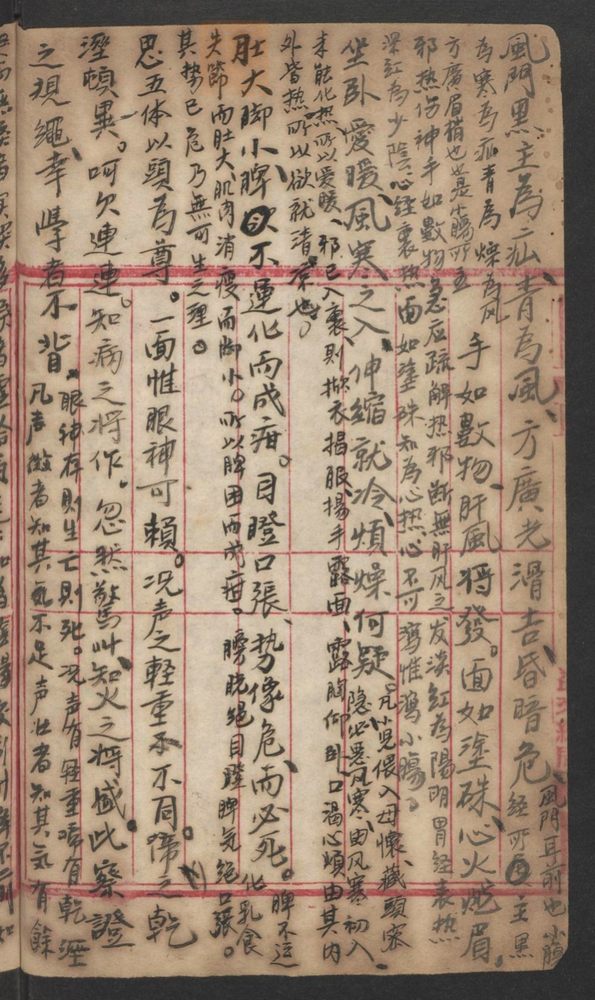 風門黑主為疝、青為風、方廣光滑吉昏暗危、風門耳前也小腸
經所主黑
為寒為疝青為燥為风
方廣眉稍也是小腸所主
手如數物肝風將發。面如塗硃心火炎眉。
邪热伤神手如數物急应疏解热邪断無肝风之发淡紅為陽明胃經表热
深紅為少陰心經裏热面如塗硃知為心热心不可瀉惟瀉小腸。
坐卧愛暖、風寒之入、伸縮就冷、煩燥何疑、凡小兒偎入母懷、藏頭
隐此恶风寒、由风寒初入、
未能化热所以爱暖、邪已入裏則掀衣揭服揚手露面、露胸仰卧、口渴心煩由其内
外皆热所以欲就清凉也。
肚大脚小脾欲不運化而成疳。目瞪口張、勢像危而必死。脾不运
化乳食
失節而肚大、肌肉消瘦而脚小。所以脾困而成疳。膀胱絕目瞪脾气絕口張。
其势已危乃無可生之理。
思五体以頭為尊。一面惟眼神可賴。况声之軽重不同啼之乾
溼頓異。呵欠連連。知病之將作。忽然驚叫、知火之將盛此察證
之規繩、幸學者不背。眼神存則生亡則死。况声有軽重啼有乾溼
凡声微者知其氣不足声壮者知其気有餘